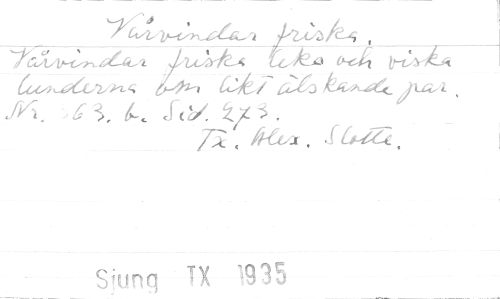 Vårvindar friska.
Vårvindar friska leka och viska
lunderna om likt älskande par.
Nr. 63. b. Sid. 273.
Tx. Alex. Slotte.
Sjung TX 1935